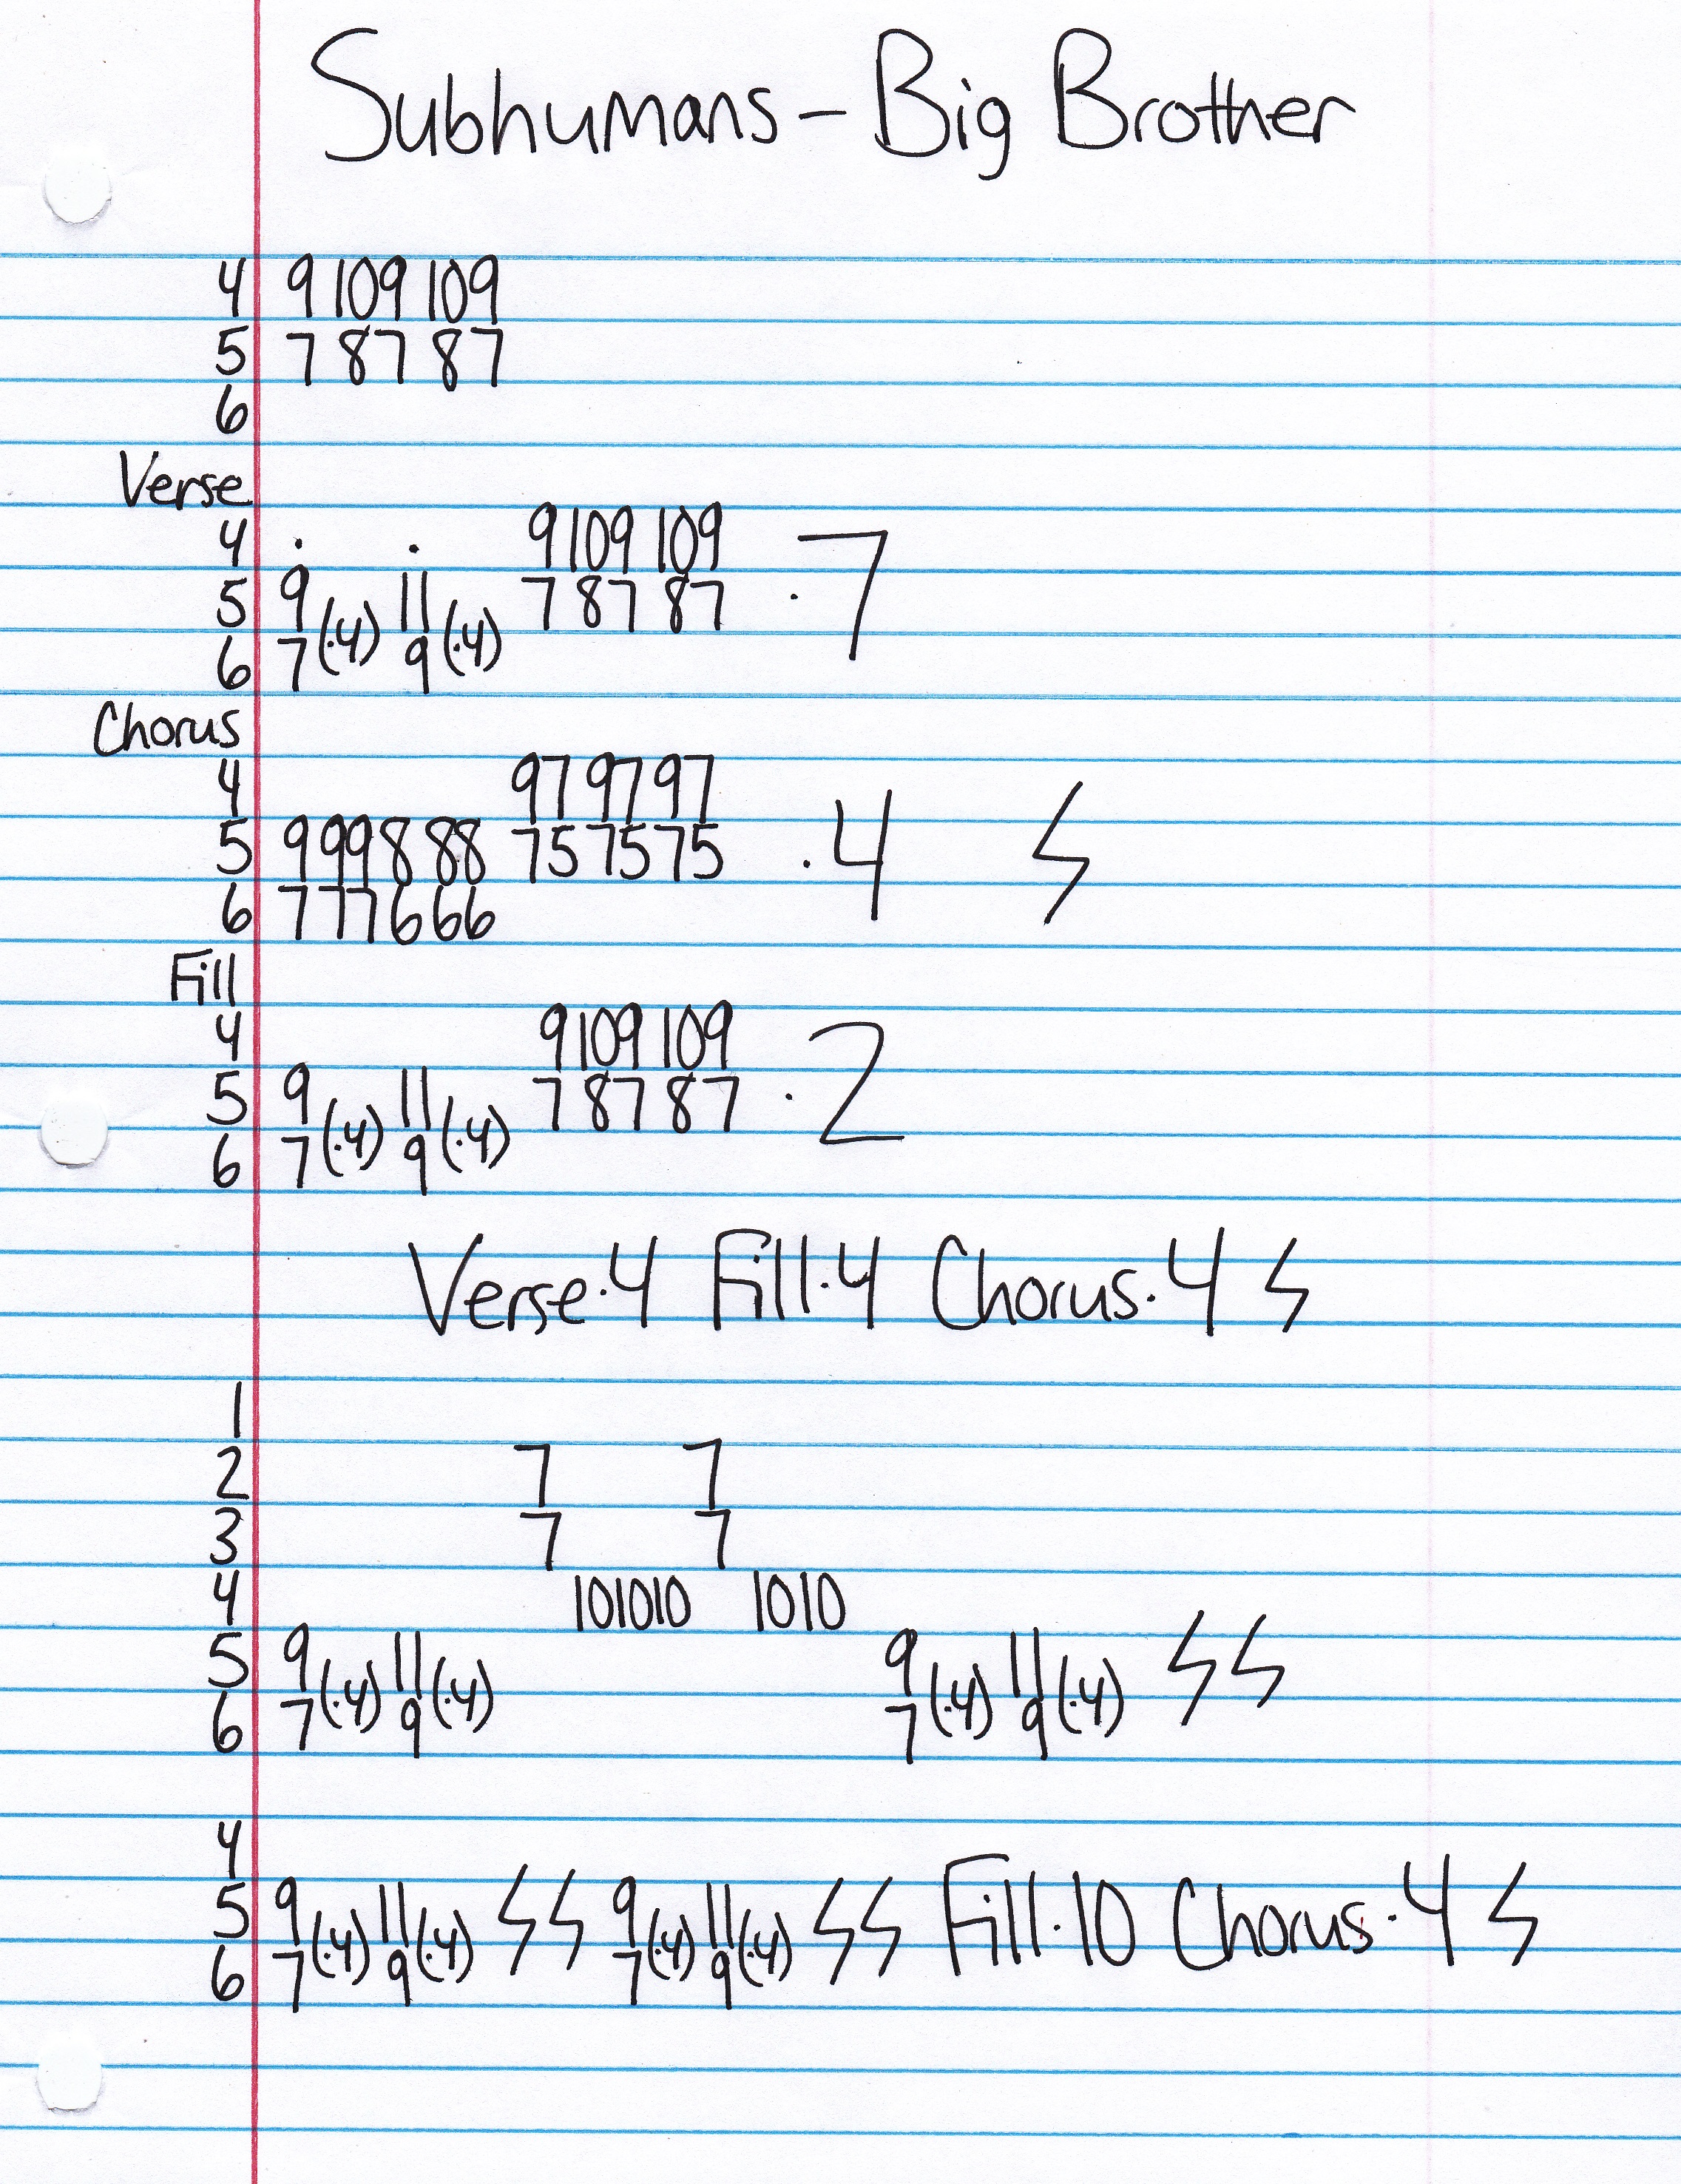 Subhumans - Big Brother
4 9 10 9 10 9
5 7 8 7 8 7
6
Verse
4 . . 9 10 9 10 9
5 9 (·4) 11 (·4) 7 8 7 8 7 · 7
6 7 9
Chorus
4 9 7 9 7 9 7
5 9 9 9 8 8 8 7 5 7 5 7 5 · 4 ϟ
6 7 7 7 6 6 6
Fill
4 9 10 9 10 9
5 9 (·4) 11 (·4) 7 8 7 8 7 · 2
6 7 9
Verse·4 Fill·4 Chorus·4 ϟ
1
2 7 7
3 7 7
4 10 10 10 10 10
5 9 (·4) 11 (·4) 9 (·4) 11 (·4) ϟ ϟ
6 7 9 7 9
4
5 9 (·4) 11 (·4) ϟ ϟ 9 (·4) 11 (·4) ϟ ϟ Fill·10 Chorus·4 ϟ
6 7 9 7 9